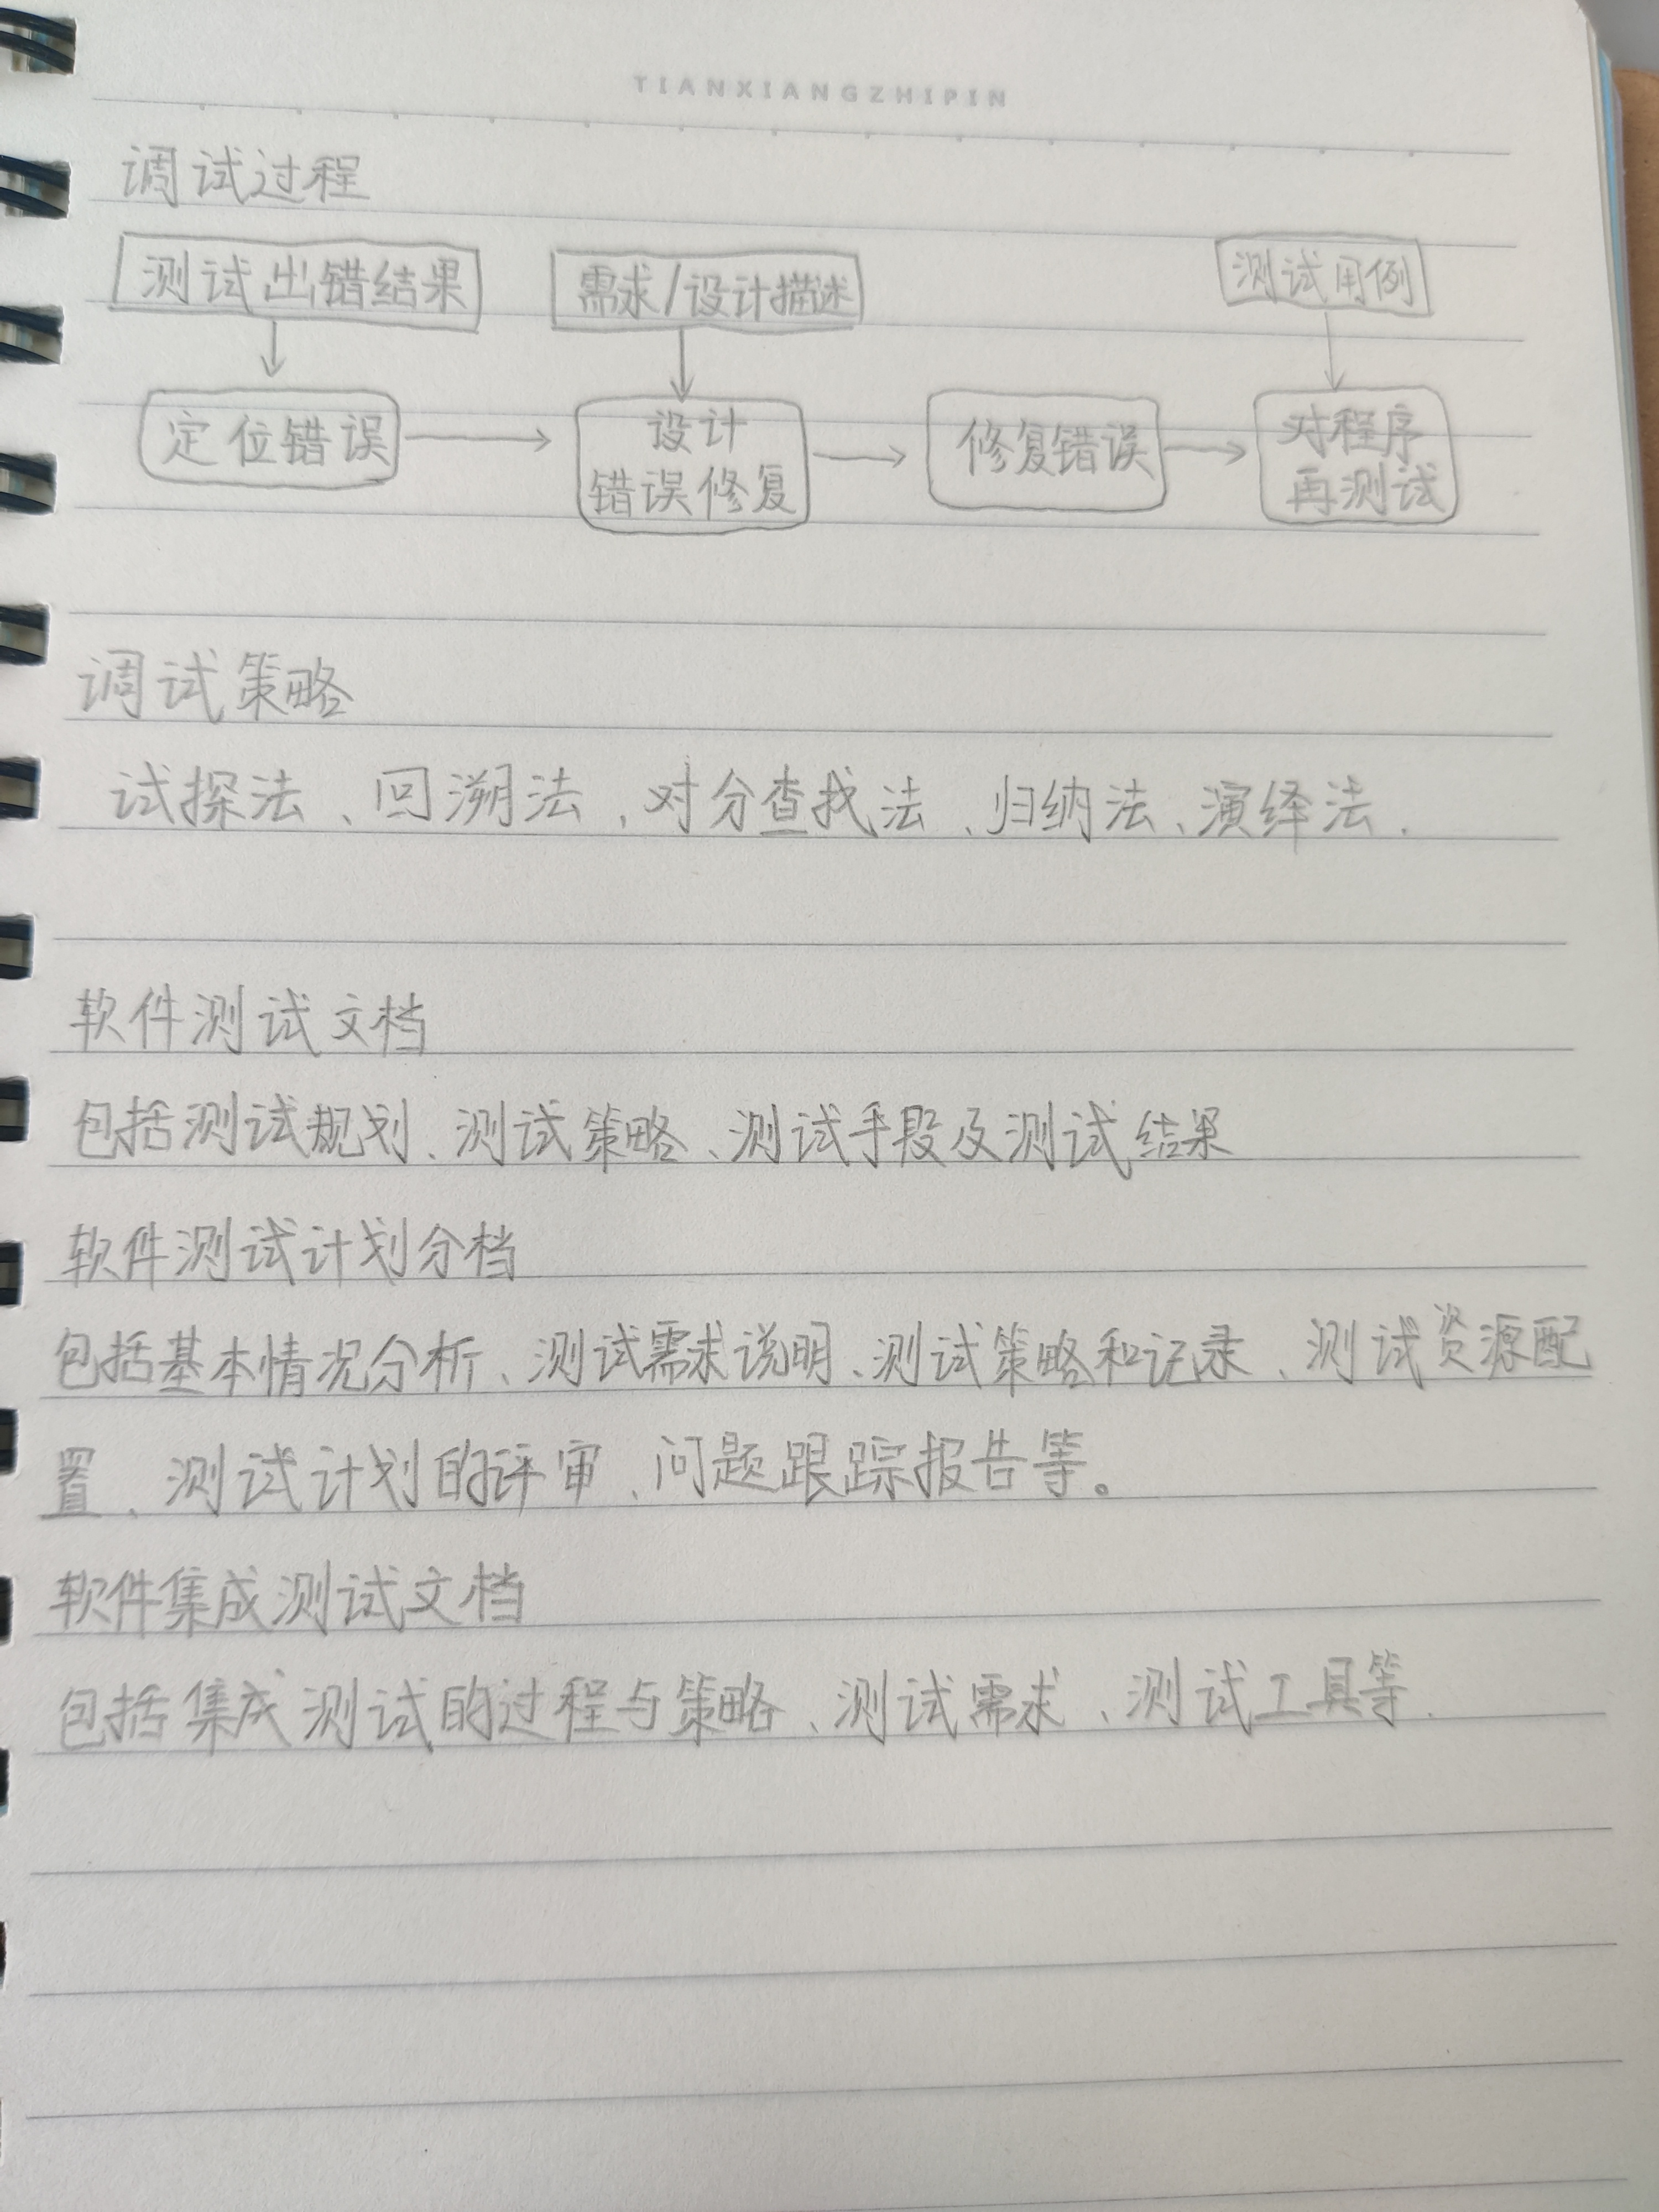 TIANXIANGZHIPIN
调试过程
测试出错结果 需求/设计描述 测试用例
定位错误 设计 修复错误 对程序
错误修复 再测试
调试策略
试探法、回溯法、对分查找法、归纳法、演绎法.
软件测试文档
包括测试规划、测试策略、测试手段及测试结果
软件测试计划分档
包括基本情况分析、测试需求说明、测试策略和记录、测试资源配
置、测试计划的评审、问题跟踪报告等。
软件集成测试文档
包括集成测试的过程与策略、测试需求、测试工具等.